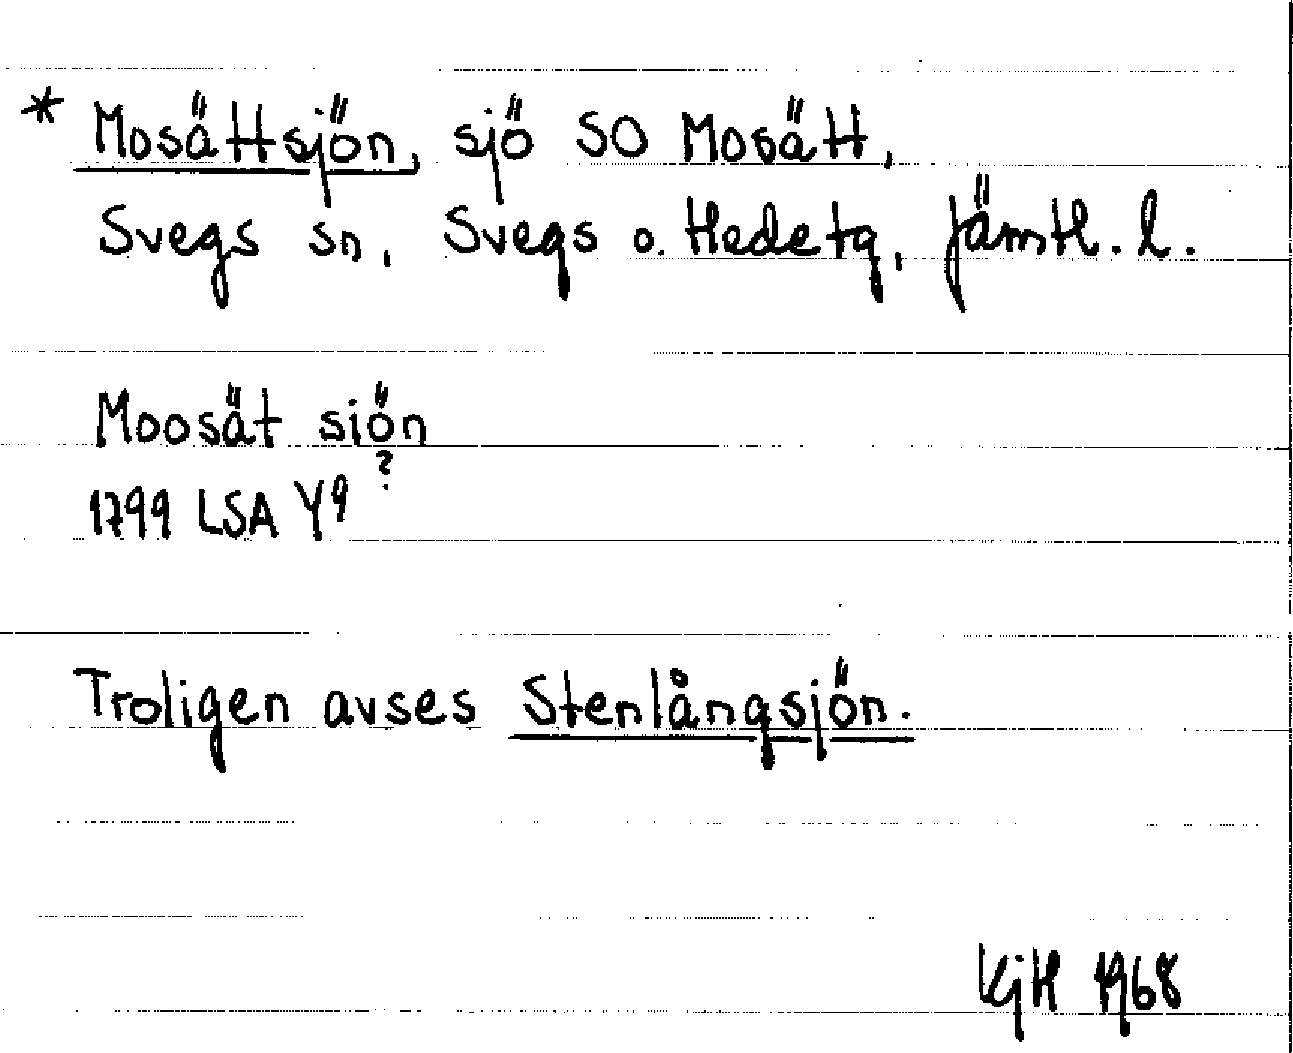 * Mosättsjön, sjö SO Mosätt,
Svegs sn, Svegs o. Hede tg, Jämtl. l.
Moosät siön
?
1799 LSA Y9
Troligen avses Stenlångsjön.
KjH 1968